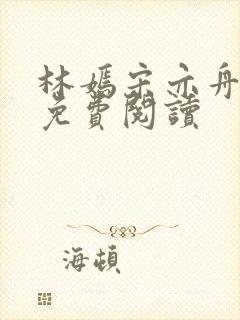 林嫣宋亦舟
免費閱讀
海頓